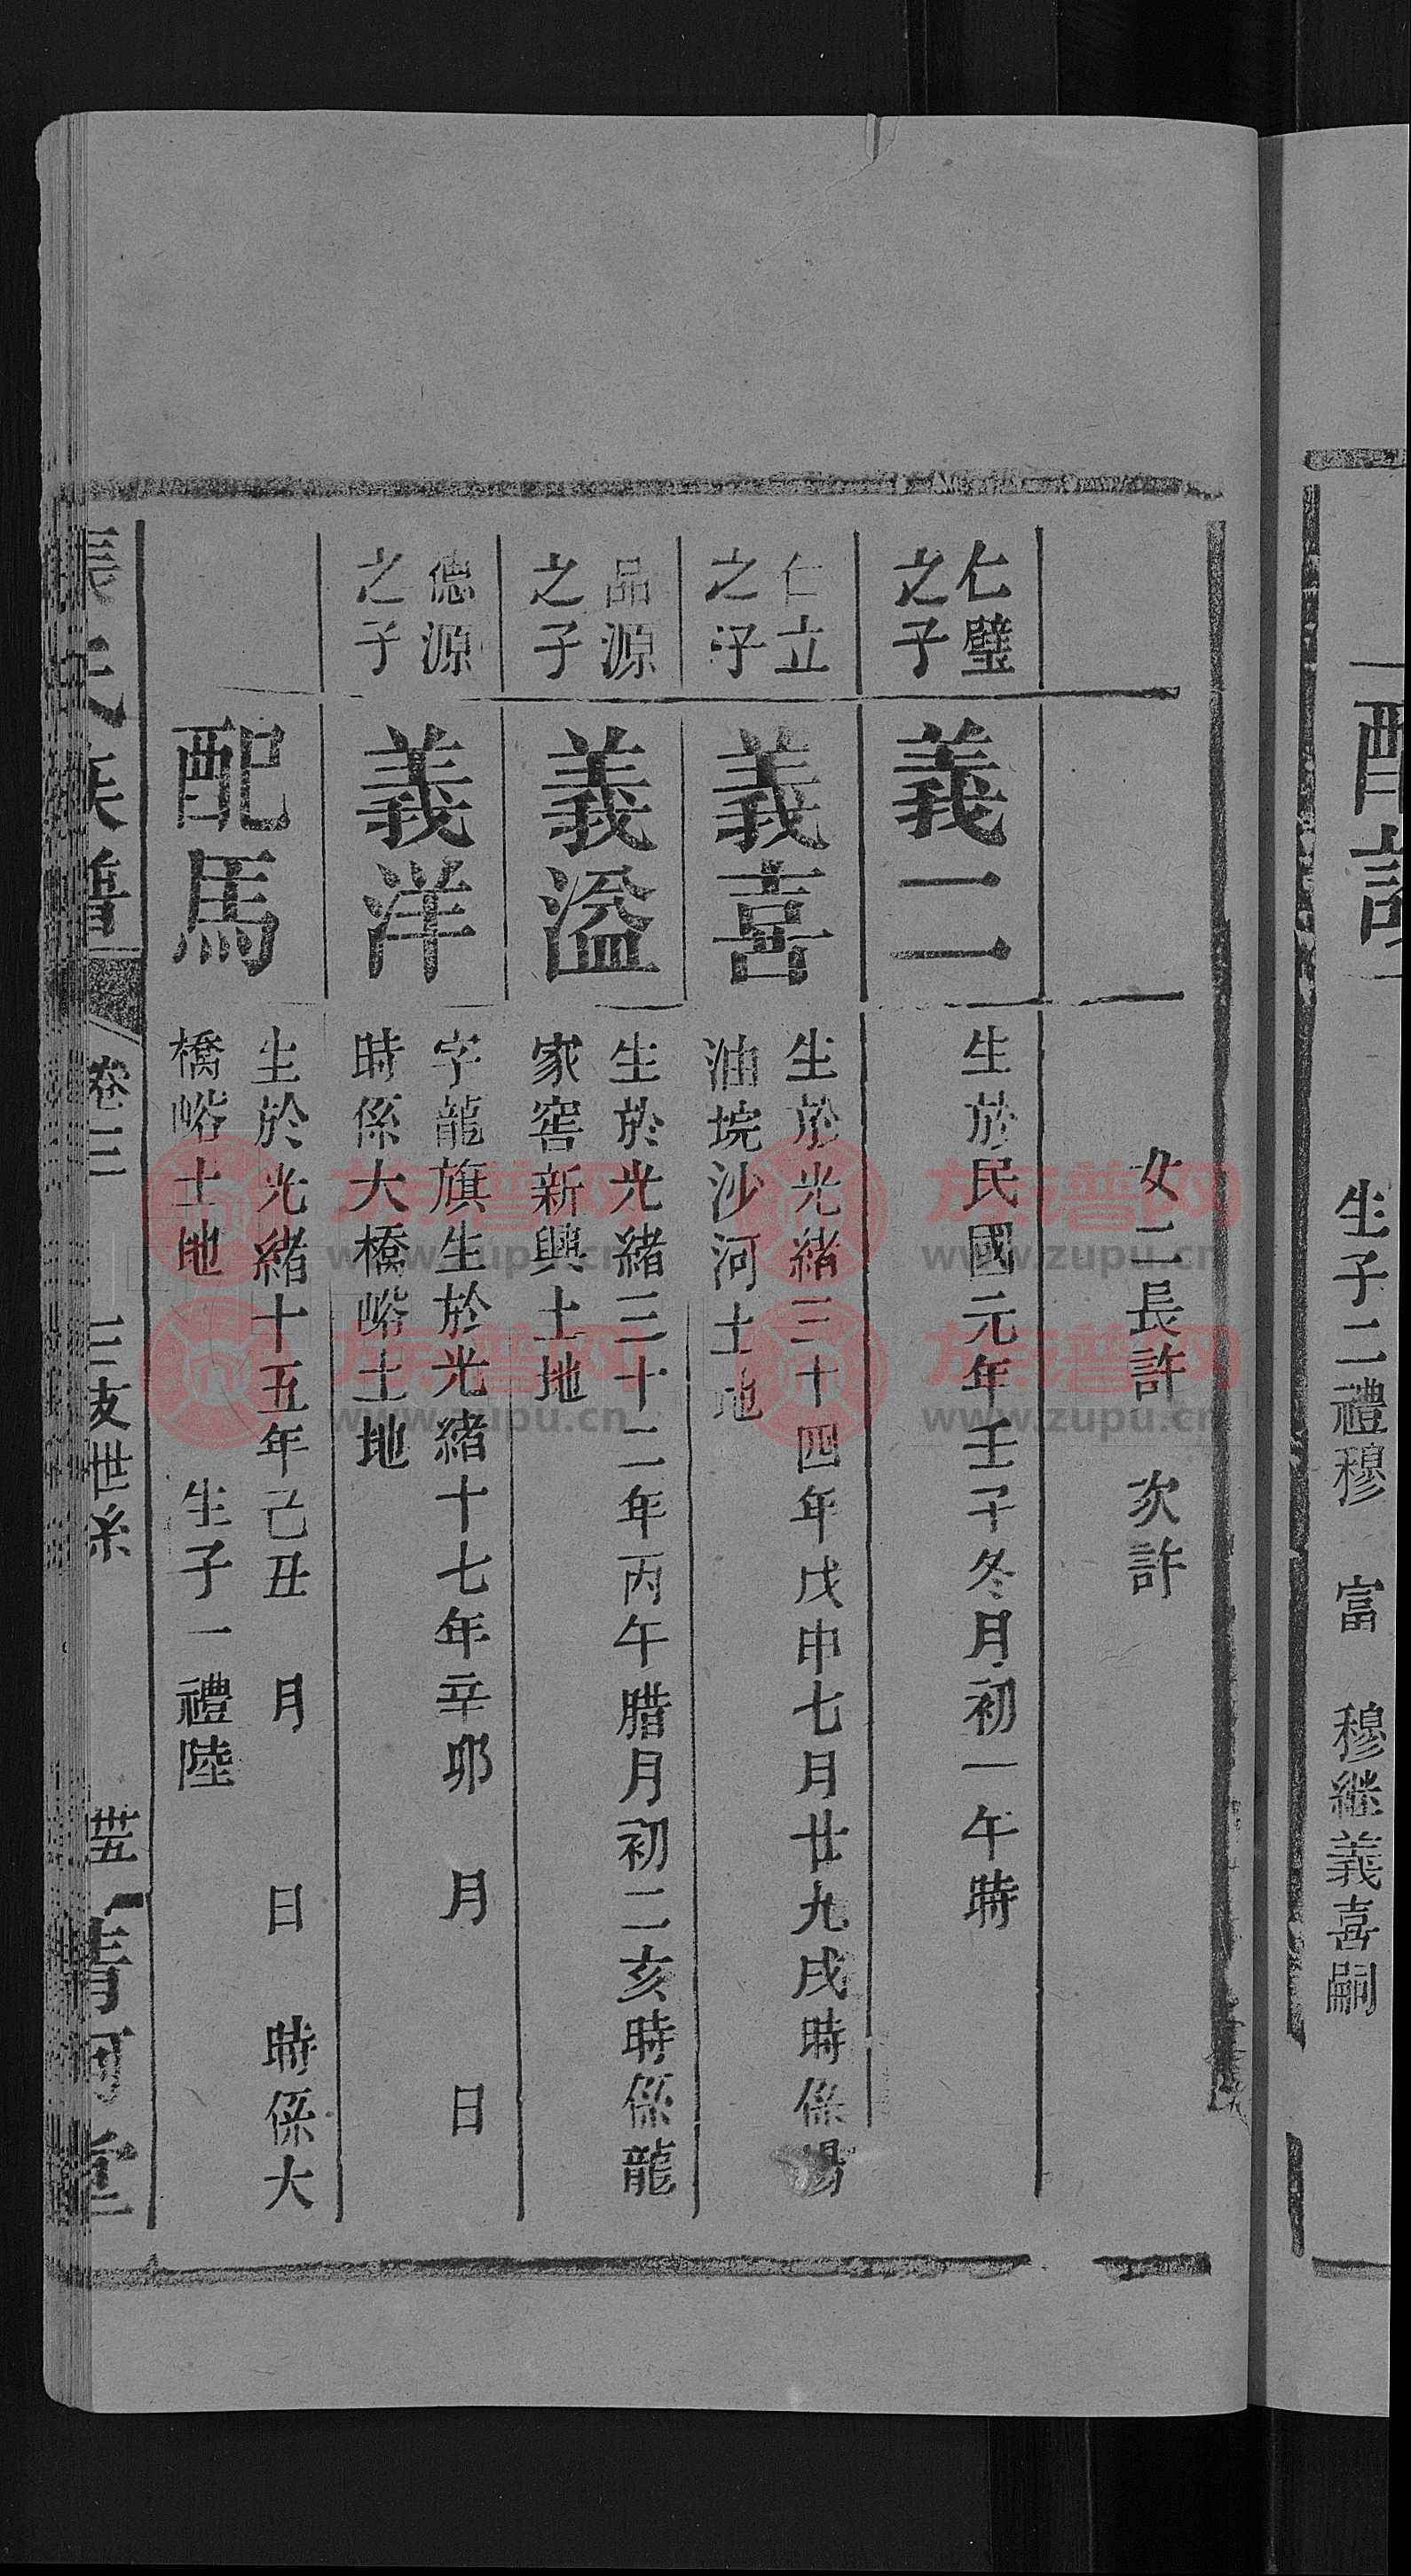 生子二禮穆　富　穆継義喜嗣
女二長許　次許
仁璧
之子
義二
生於民國元年壬子冬月初一午時
仁立
之子
義喜
生於光緒三十四年戊申七月廿九戌時係楊
油垸沙河土地
品源
之子
義溢
生於光緒三十二年丙午腊月初二亥時係龍
家窖新興土地
德源
之子
義洋
字龍旗生於光緒十七年辛卯　月　　日
時係大橋峪土地
配馬
生於光緒十五年己丑　月　　日　時係大
橋峪土地　　生子一禮陸
張氏族譜
卷三　三支世系
清河堂
族谱网
www.zupu.cn
族谱网
www.zupu.cn
族谱网
www.zupu.cn
族谱网
www.zupu.cn